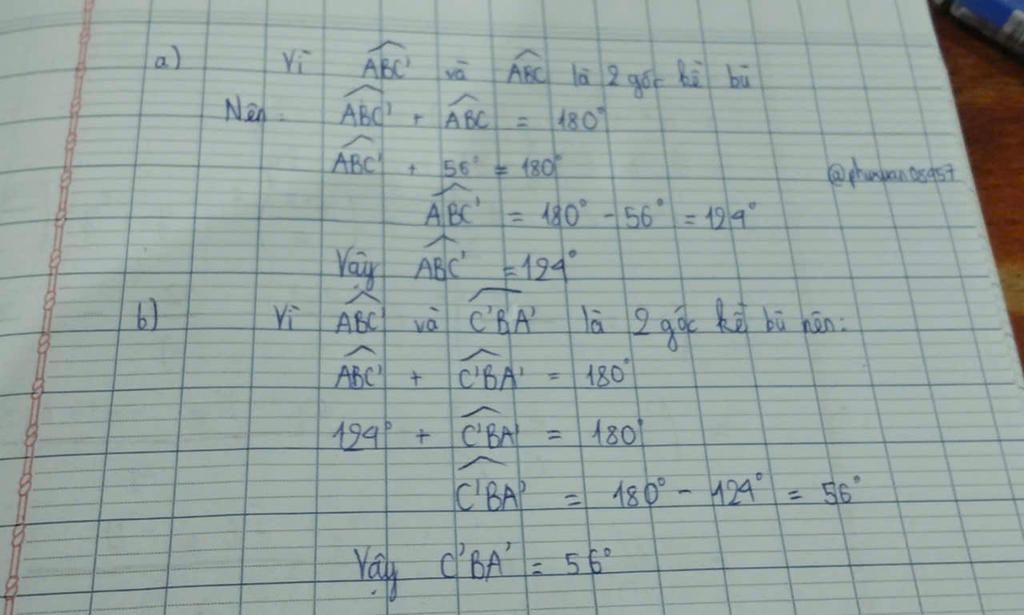 a) Vì ABC' và ABC là 2 góc kề bù
Nên: ABC' + ABC = 180°
ABC' + 56° = 180°
@phuxuan08957
ABC' = 180° - 56° = 124°
Vậy ABC' = 124°
b) Vì ABC' và C'BA' là 2 góc kề bù nên:
ABC' + C'BA' = 180°
124° + C'BA' = 180°
C'BA' = 180° - 124° = 56°
Vậy C'BA' = 56°